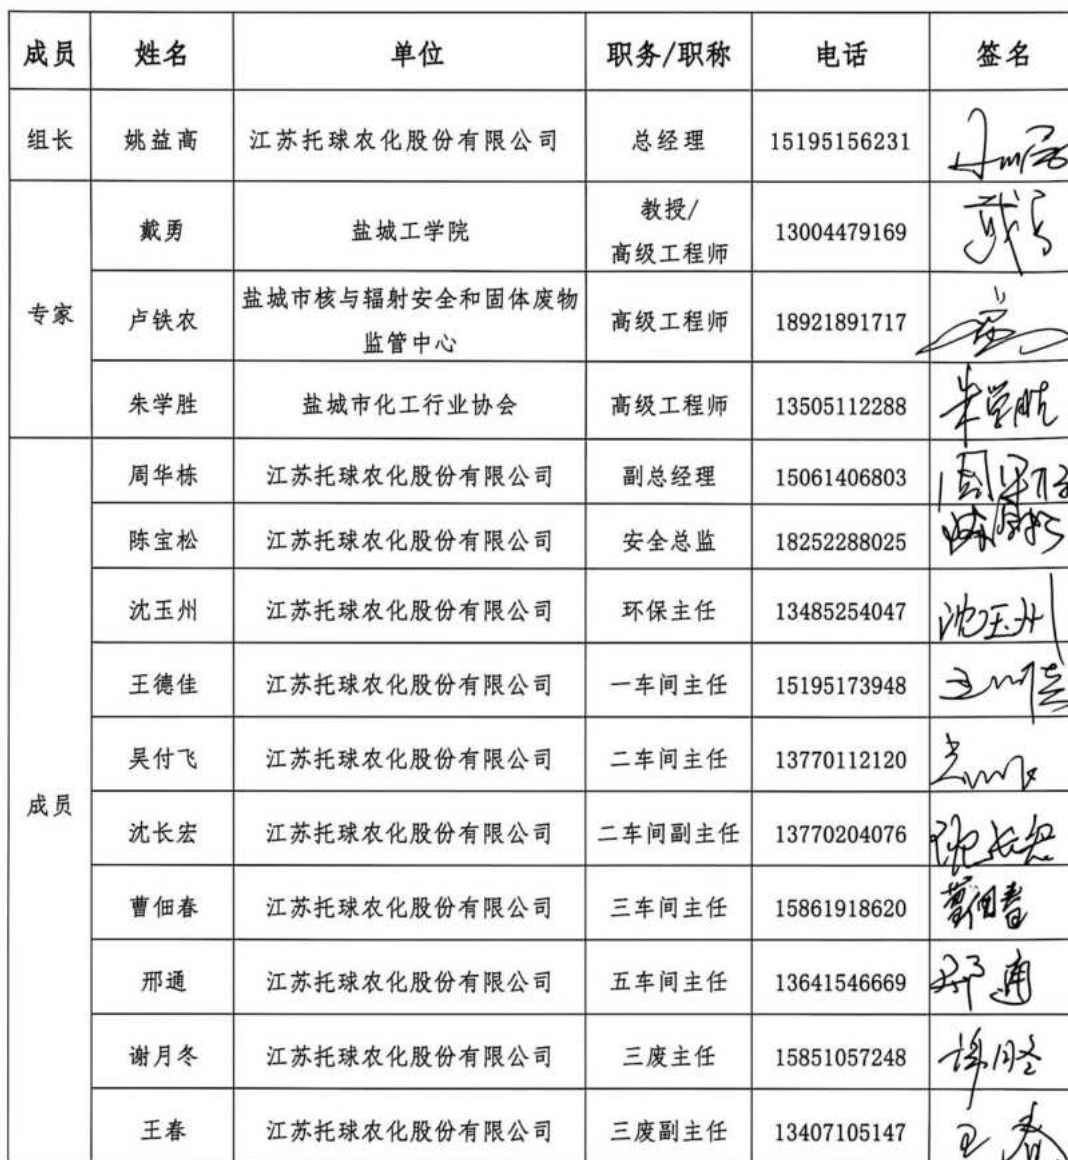 成员 姓名 单位 职务/职称 电话 签名
组长 姚益高 江苏托球农化股份有限公司 总经理 15195156231
专家
戴勇 盐城工学院 教授/
高级工程师 13004479169 戴勇
卢铁农 盐城市核与辐射安全和固体废物
监管中心 高级工程师 18921891717
朱学胜 盐城市化工行业协会 高级工程师 13505112288 朱学胜
成员
周华栋 江苏托球农化股份有限公司 副总经理 15061406803 周华栋
陈宝松 江苏托球农化股份有限公司 安全总监 18252288025
沈玉州 江苏托球农化股份有限公司 环保主任 13485254047 沈玉州
王德佳 江苏托球农化股份有限公司 一车间主任 15195173948
吴付飞 江苏托球农化股份有限公司 二车间主任 13770112120
沈长宏 江苏托球农化股份有限公司 二车间副主任 13770204076 沈长宏
曹佃春 江苏托球农化股份有限公司 三车间主任 15861918620 曹佃春
邢通 江苏托球农化股份有限公司 五车间主任 13641546669 邢通
谢月冬 江苏托球农化股份有限公司 三废主任 15851057248 谢月冬
王春 江苏托球农化股份有限公司 三废副主任 13407105147 王春